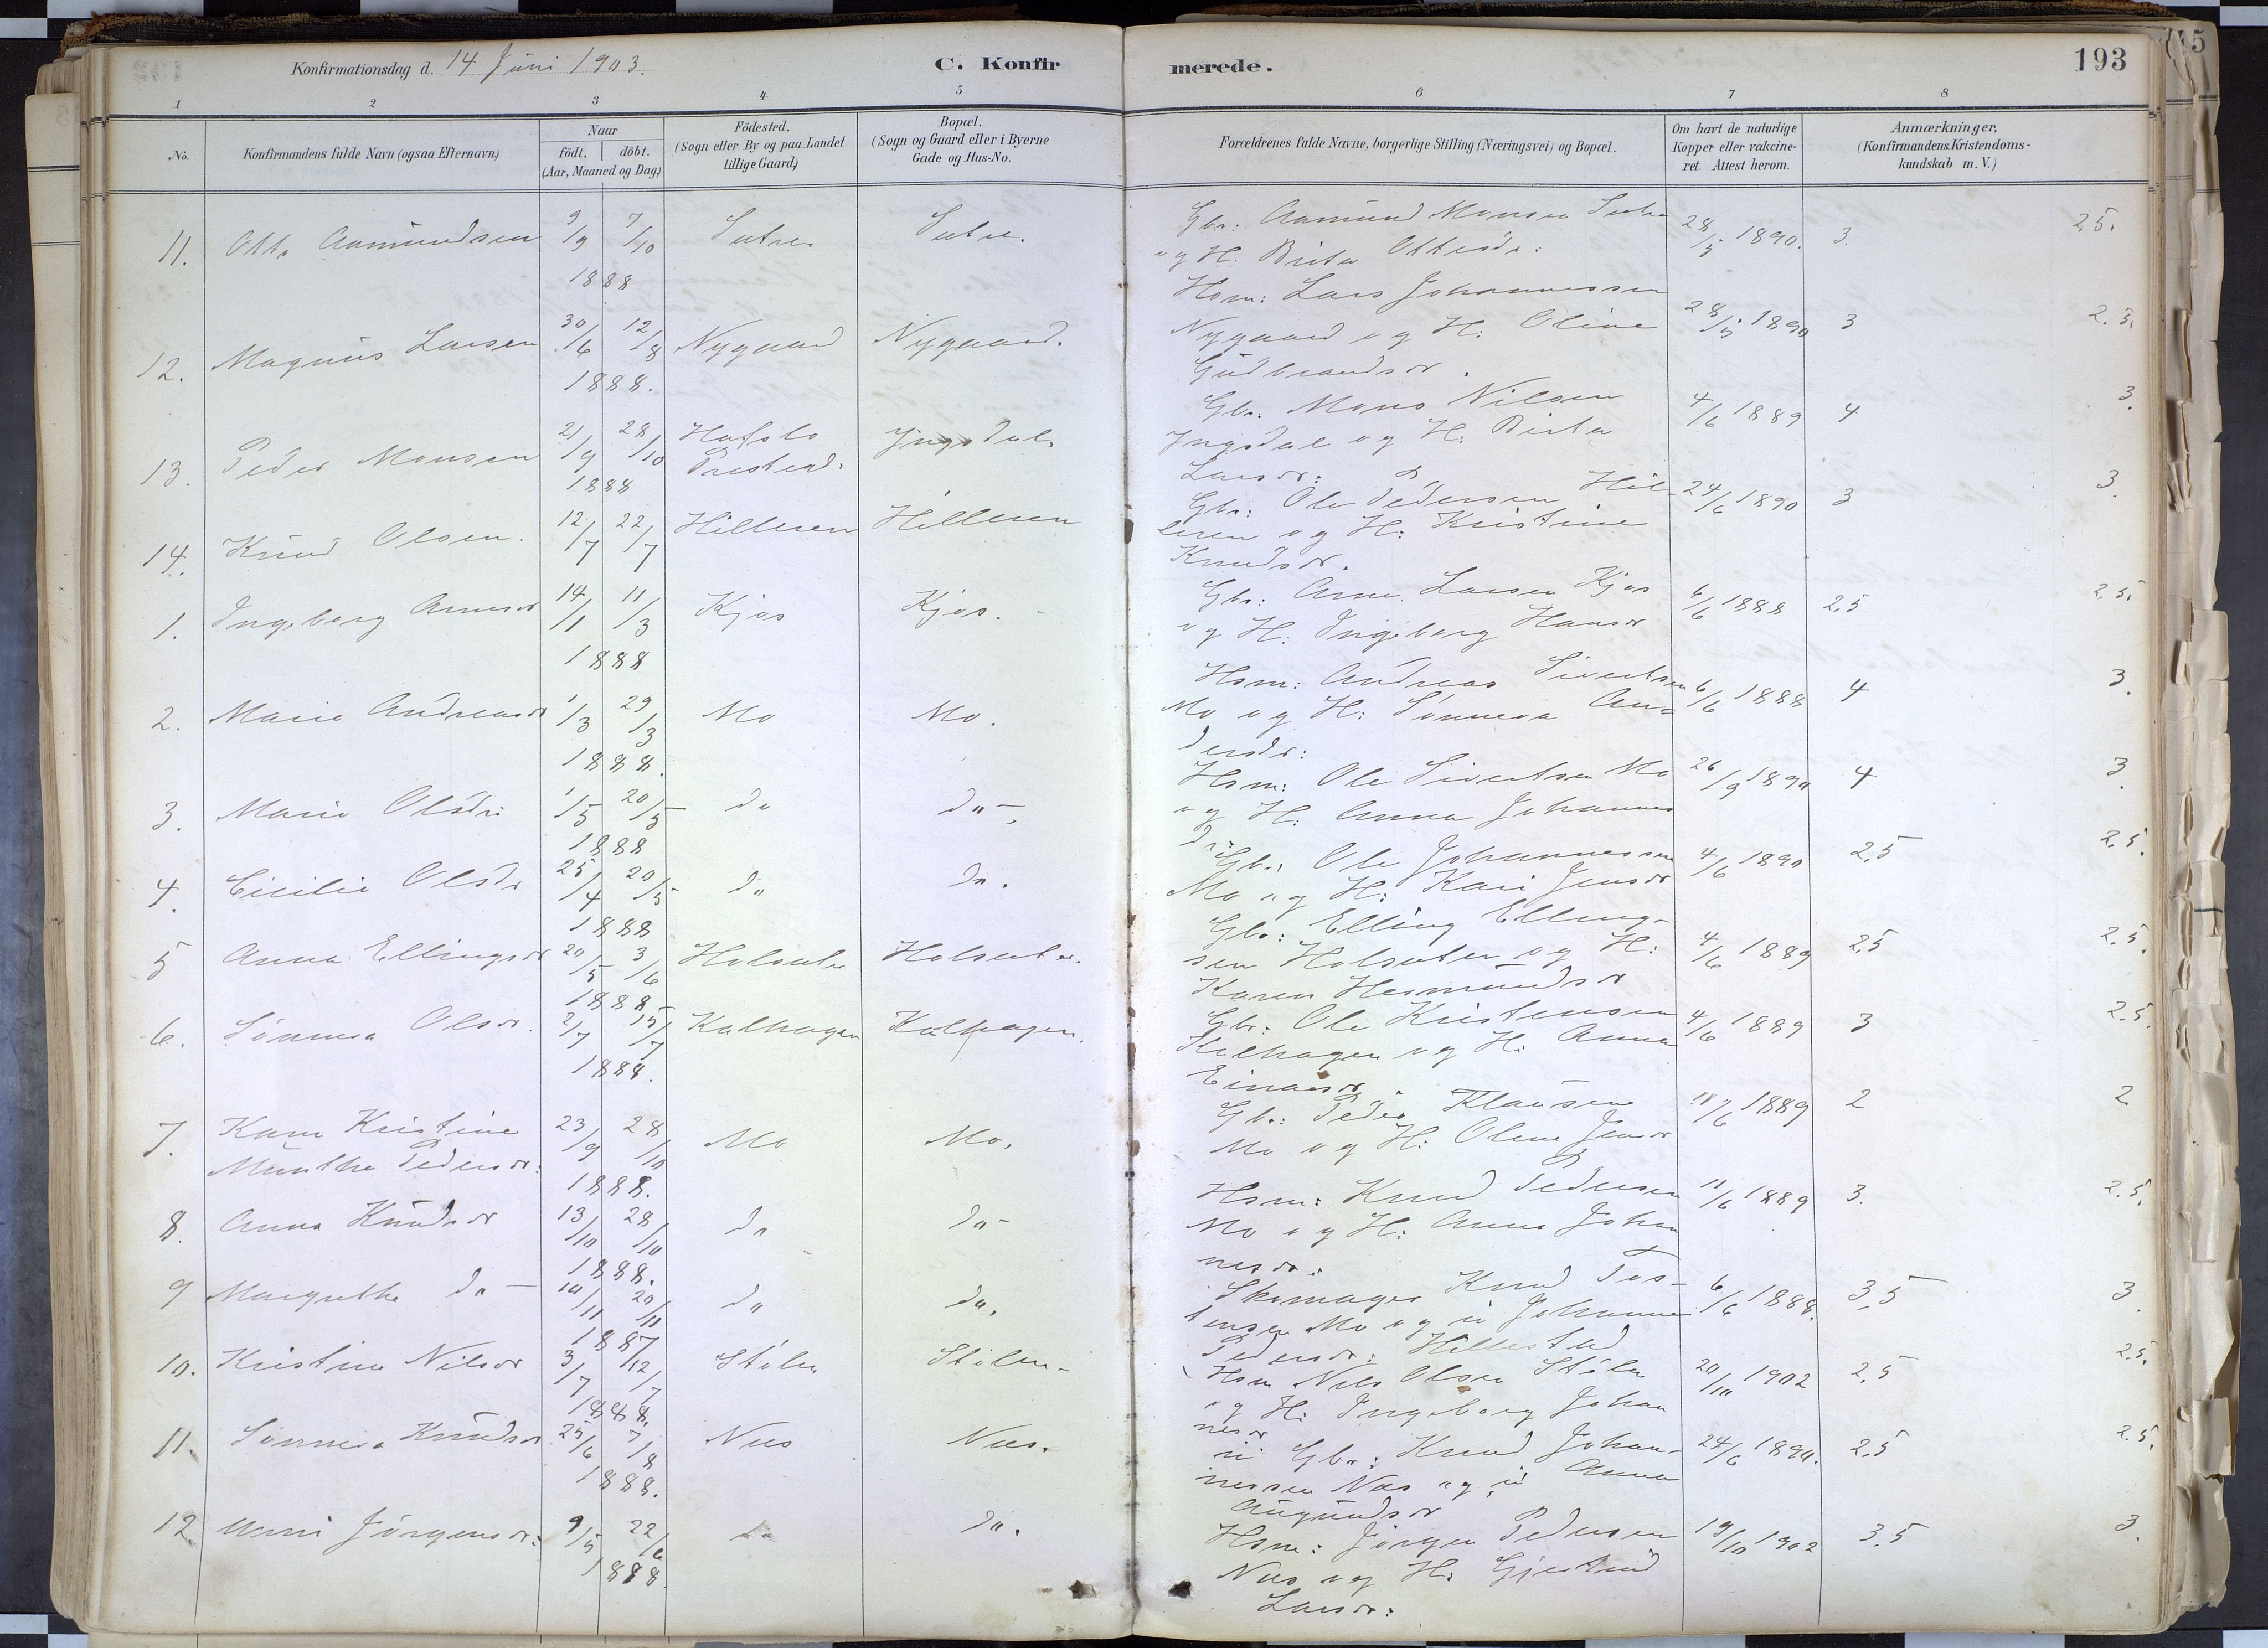 Konfirmationsdag d. 14 Juni 1903.
C. Konfirmerede.
193
1 2 3 4 5 6 7 8
No.
Konfirmandens fulde Navn (ogsaa Efternavn)
Naar
födt. döbt.
(Aar, Maaned og Dag.)
Födested.
(Sogn eller By og paa Landet
tillige Gaard)
Bopæl.
(Sogn og Gaard eller i Byerne
Gade og Hus-No.
Forældrenes fulde Navne, borgerlige Stilling (Næringsvei) og Bopæl.
Om havt de naturlige
Kopper eller vakcine-
ret. Attest herom.
Anmærkninger,
(Konfirmandens Kristendoms-
kundskab m. V.)
11. Otto Aamundsen 9/9 7/10 1888
Gbr: Aamund Monsen
og H: Brita Ottesdr: 28/5 1890. 3. 2.5.
12. Magnus Larsen 30/6 12/8 1888. Nygaard Nygaard.
Hsm: Lars Johannessen
Nygaard og H: Oline
Gudbrandsdr. 28/5 1890 3 2.5.
13. Peder Monsen 21/9 28/10 1888 Hafslo
Presteg: Yngsdal.
Gbr. Mons Nilsen
Yngsdal og H: Brita
Larsdr: 4/6 1889 4 3.
14. Knud Olsen. 12/7 22/7 Hilleren Hilleren
Gbr: Ole Pedersen Hil-
leren og H: Kristine
Knudsdr. 24/6 1890 3 3.
1. Ingeborg Arnesdr 14/1 11/3 1888 Kjos Kjos.
Gbr: Arne Larsen Kjos
og H: Ingeborg Hansdr 6/6 1888 2.5 2.5.
2. Marie Andreasdr 1/3 29/3 1888. Mo Mo.
Hsm: Andreas Sivertsen
Mo og H: Sønneva An-
dersdr: 6/6 1888 4 3.
3. Marie Olsdr: 1/5 20/5 1888 do do-
Hsm: Ole Sivertsen Mo
og H: Anna Johannes
dr: 26/9 1890 4 3.
4. Cicilie Olsdr 25/4 20/5 1888 do do.
Gbr: Ole Johannessen
Mo og H: Kari Jensdr 4/6 1890 2.5 2.5.
5 Anna Ellingsdr 20/5 3/6 1888 Holsæter Holsæter.
Gbr: Elling Elling-
sen Holsæter og H:
Karen Hermundsdr 4/6 1889 2.5 2.5.
6. Sønneva Olsdr. 2/7 15/7 1888. Kalhagen Kalhagen.
Gbr: Ole Kristensen
Kalhagen og H: Anna
Einarsdr. 4/6 1889 3 2.5.
7. Karen Kristine
Munthe Pedersdr: 23/9 28/10 1888. Mo Mo.
Gbr: Peder Klausen
Mo og H: Oline Jensdr 11/6 1889 2 2
8. Anna Knudsdr 13/10 28/10 1888. do do-
Hsm: Knud Pedersen
Mo og H: Anna Johan
nesdr: 11/6 1889 3. 2.5.
9 Margrethe do- 10/11 20/11 1887 do do.
Skomager Knud Tos-
tensen Mo og u Johanne
Pedersdr: Hillestad 6/6 1888. 3.5 3.
10. Kristine Nilsdr 3/7 12/7 1888. Stølen Stølen-
Hsm Nils Olsen Stølen
og H: Ingeborg Johan
nesdr 20/10 1902 2.5 2.5.
11. Sønneva Knudsdr 25/6 7/8 1888. Næs Næs.
u Gbr: Knud Johan-
nessen Næs og u Anna
Augundsdr 24/6 1890. 2.5 2.5.
12. Jørgensdr: 9/5 22/6 1888. do do.
Hsm: Jørgen Pedersen
Næs og H: Gjertrud
Larsdr: 19/10 1902 3.5 3.